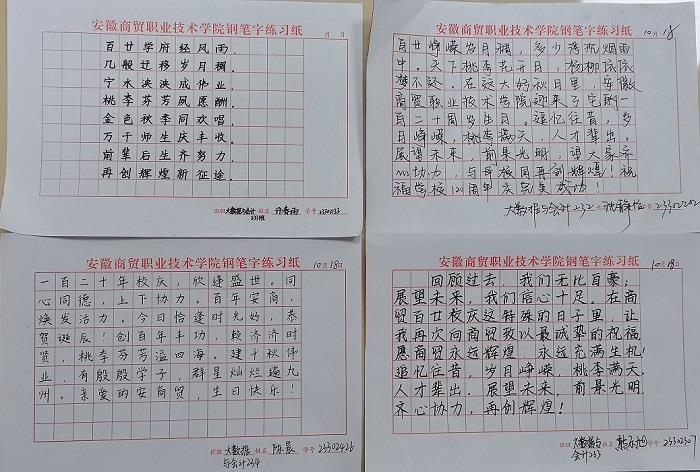 安徽商贸职业技术学院钢笔字练习纸
月 日
百廿学府经风雨,
几般迁移岁月稠,
宁水泱泱成伟业,
桃李芬芳夙愿酬,
金色秋季同欢唱,
万千师生庆丰收,
前辈后生齐努力,
再创辉煌新征途,
班级 大数据与会计 姓名 学号
安徽商贸职业技术学院钢笔字练习纸
10月18
百廿峥嵘岁月稠,多少楼台烟雨
中。天下桃李花开日,杨柳依依
梦不还。在这大好秋日里,安徽
商贸职业技术学院迎来了它的一
百二十周岁生日。追忆往昔,岁
月峥嵘,桃李满天,人才辈出,
展望未来,前景光明,望大家齐
心协力,与母校同再创辉煌!祝
福学校120周年庆完美成功!
大数据与会计232
安徽商贸职业技术学院钢笔字练习纸
10月18日
一百二十年校庆,欣逢盛世。同
心同德,上下协力。百年安商,
焕发活力。今日恰逢时光好,恭
贺诞辰!创百年丰功,赖济济时
贤,桃李芬芳溢四海。建千秋伟
业,有殷殷学子,群星灿烂遍九
州。亲爱的安商贸,生日快乐!
班级 大数据与会计234 姓名 陈晨 学号 23302426
安徽商贸职业技术学院钢笔字练习纸
10月18日
回顾过去,我们无比自豪;
展望未来,我们信心十足。在商
贸百廿校庆这特殊的日子里,让
我再次向商贸致以最诚挚的祝福,
愿商贸永远辉煌 永远充满生机!
追忆往昔,岁月峥嵘,桃李满天,
人才辈出。展望未来,前景光明,
齐心协力,再创辉煌!
班级 大数据与会计233 姓名 学号